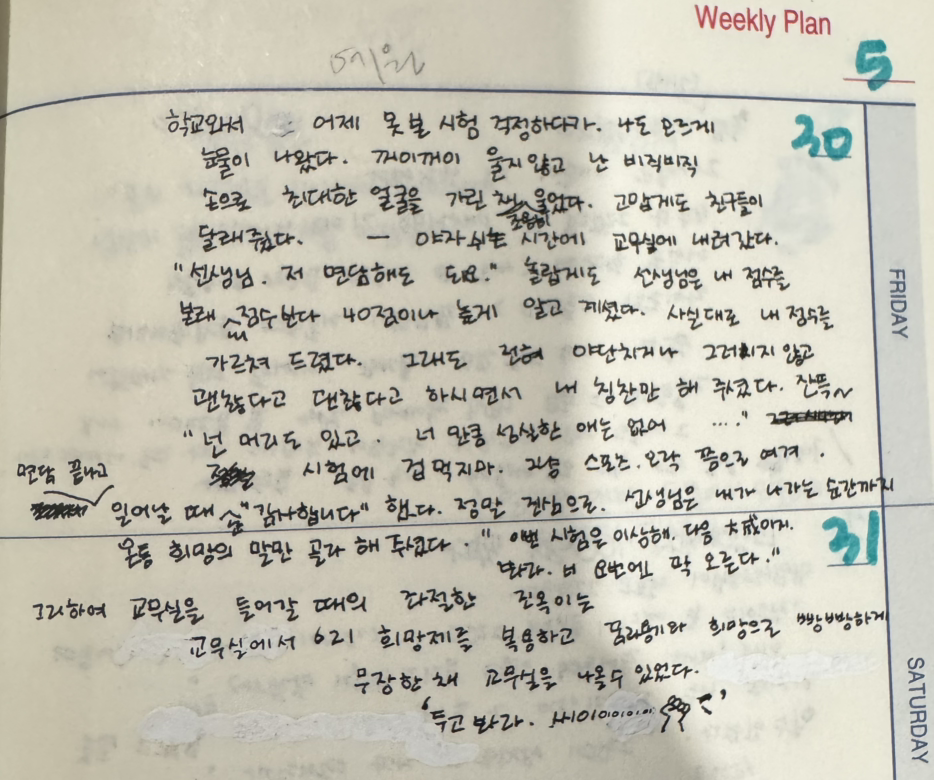 Weekly Plan
5
30
학교와서 어제 못본 시험 걱정하다가. 나도 모르게
눈물이 나왔다. 꺼이꺼이 울지 않고 난 비직비직
손으로 최대한 얼굴을 가린 채 울었다. 고맙게도 친구들이
조용히
달래줬다. — 야자 쉬는 시간에 교무실에 내려갔다.
"선생님. 저 면담해도 되요." 놀랍게도 선생님은 내 점수를
본래 점수보다 40점이나 높게 알고 계셨다. 사실대로 내 점수를
가르쳐 드렸다. 그래도 전혀 야단치거나 그러시지 않고
괜찮다고 괜찮다고 하시면서 내 칭찬만 해 주셨다. 잔뜩~
"넌 머리도 있고. 너 만큼 성실한 애는 없어 ...."
시험에 겁먹지마. 그냥 스포츠. 오락 쯤으로 여겨.
면담 끝나고
일어날 때 "감사합니다" 했다. 정말 진심으로. 선생님은 내가 나가는 순간까지
온통 희망의 말만 골라 해 주셨다. "이번 시험은 이상해. 다음 大成이지.
봐라. 너 요번에 막 오른다."
31
그리하여 교무실을 들어갈 때의 좌절한 진옥이는
교무실에서 621 희망제를 복용하고 용기와 희망으로 빵빵하게
무장한 채 교무실을 나올수 있었다.
'두고 봐라. 씨이이......'
FRIDAY
SATURDAY